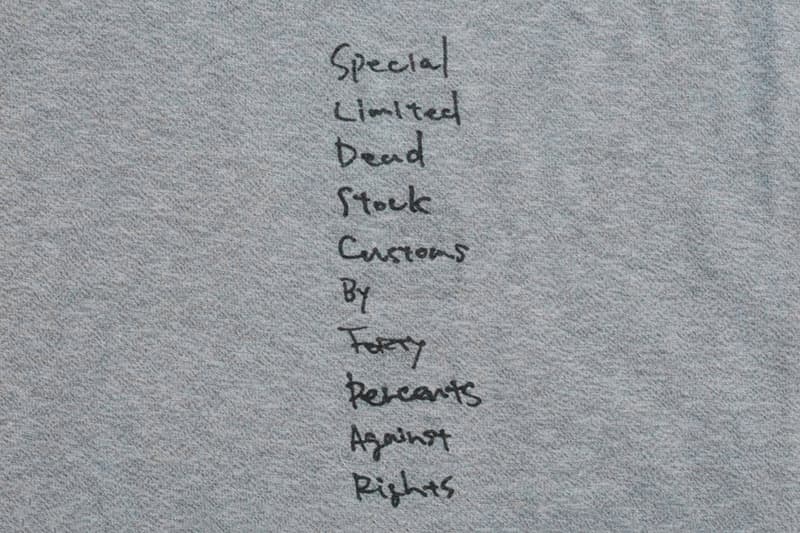 Special
Limited
Dead
Stock
Customs
By
Forty
Percents
Against
Rights